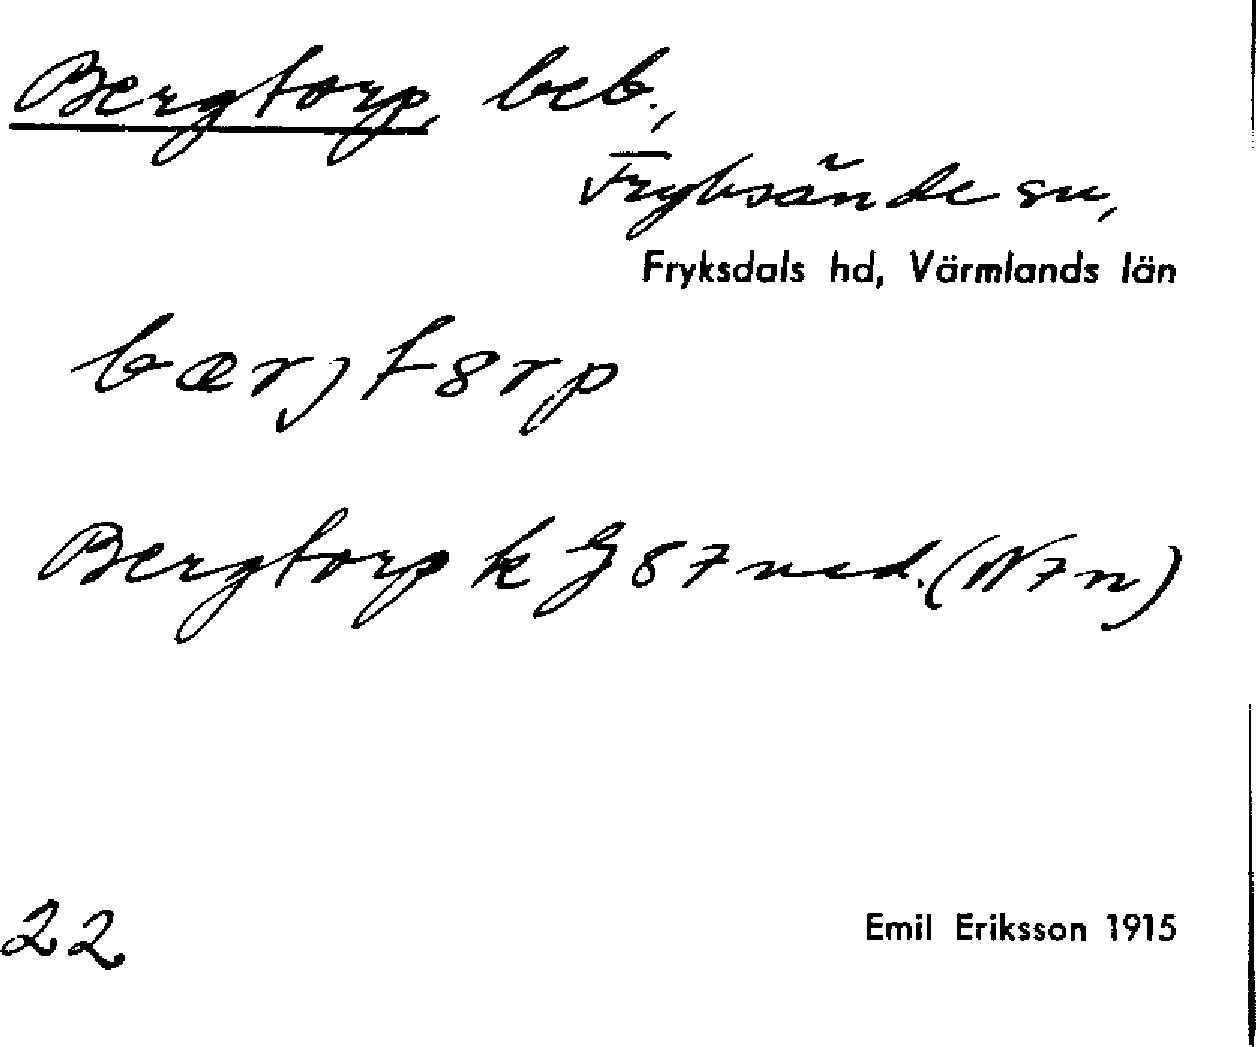 Bergtorp, beb.,
Fryksände sn,
Fryksdals hd, Värmlands län
bærjtɞrp
Bergtorp k G 87 ned. (N7n)
22
Emil Eriksson 1915